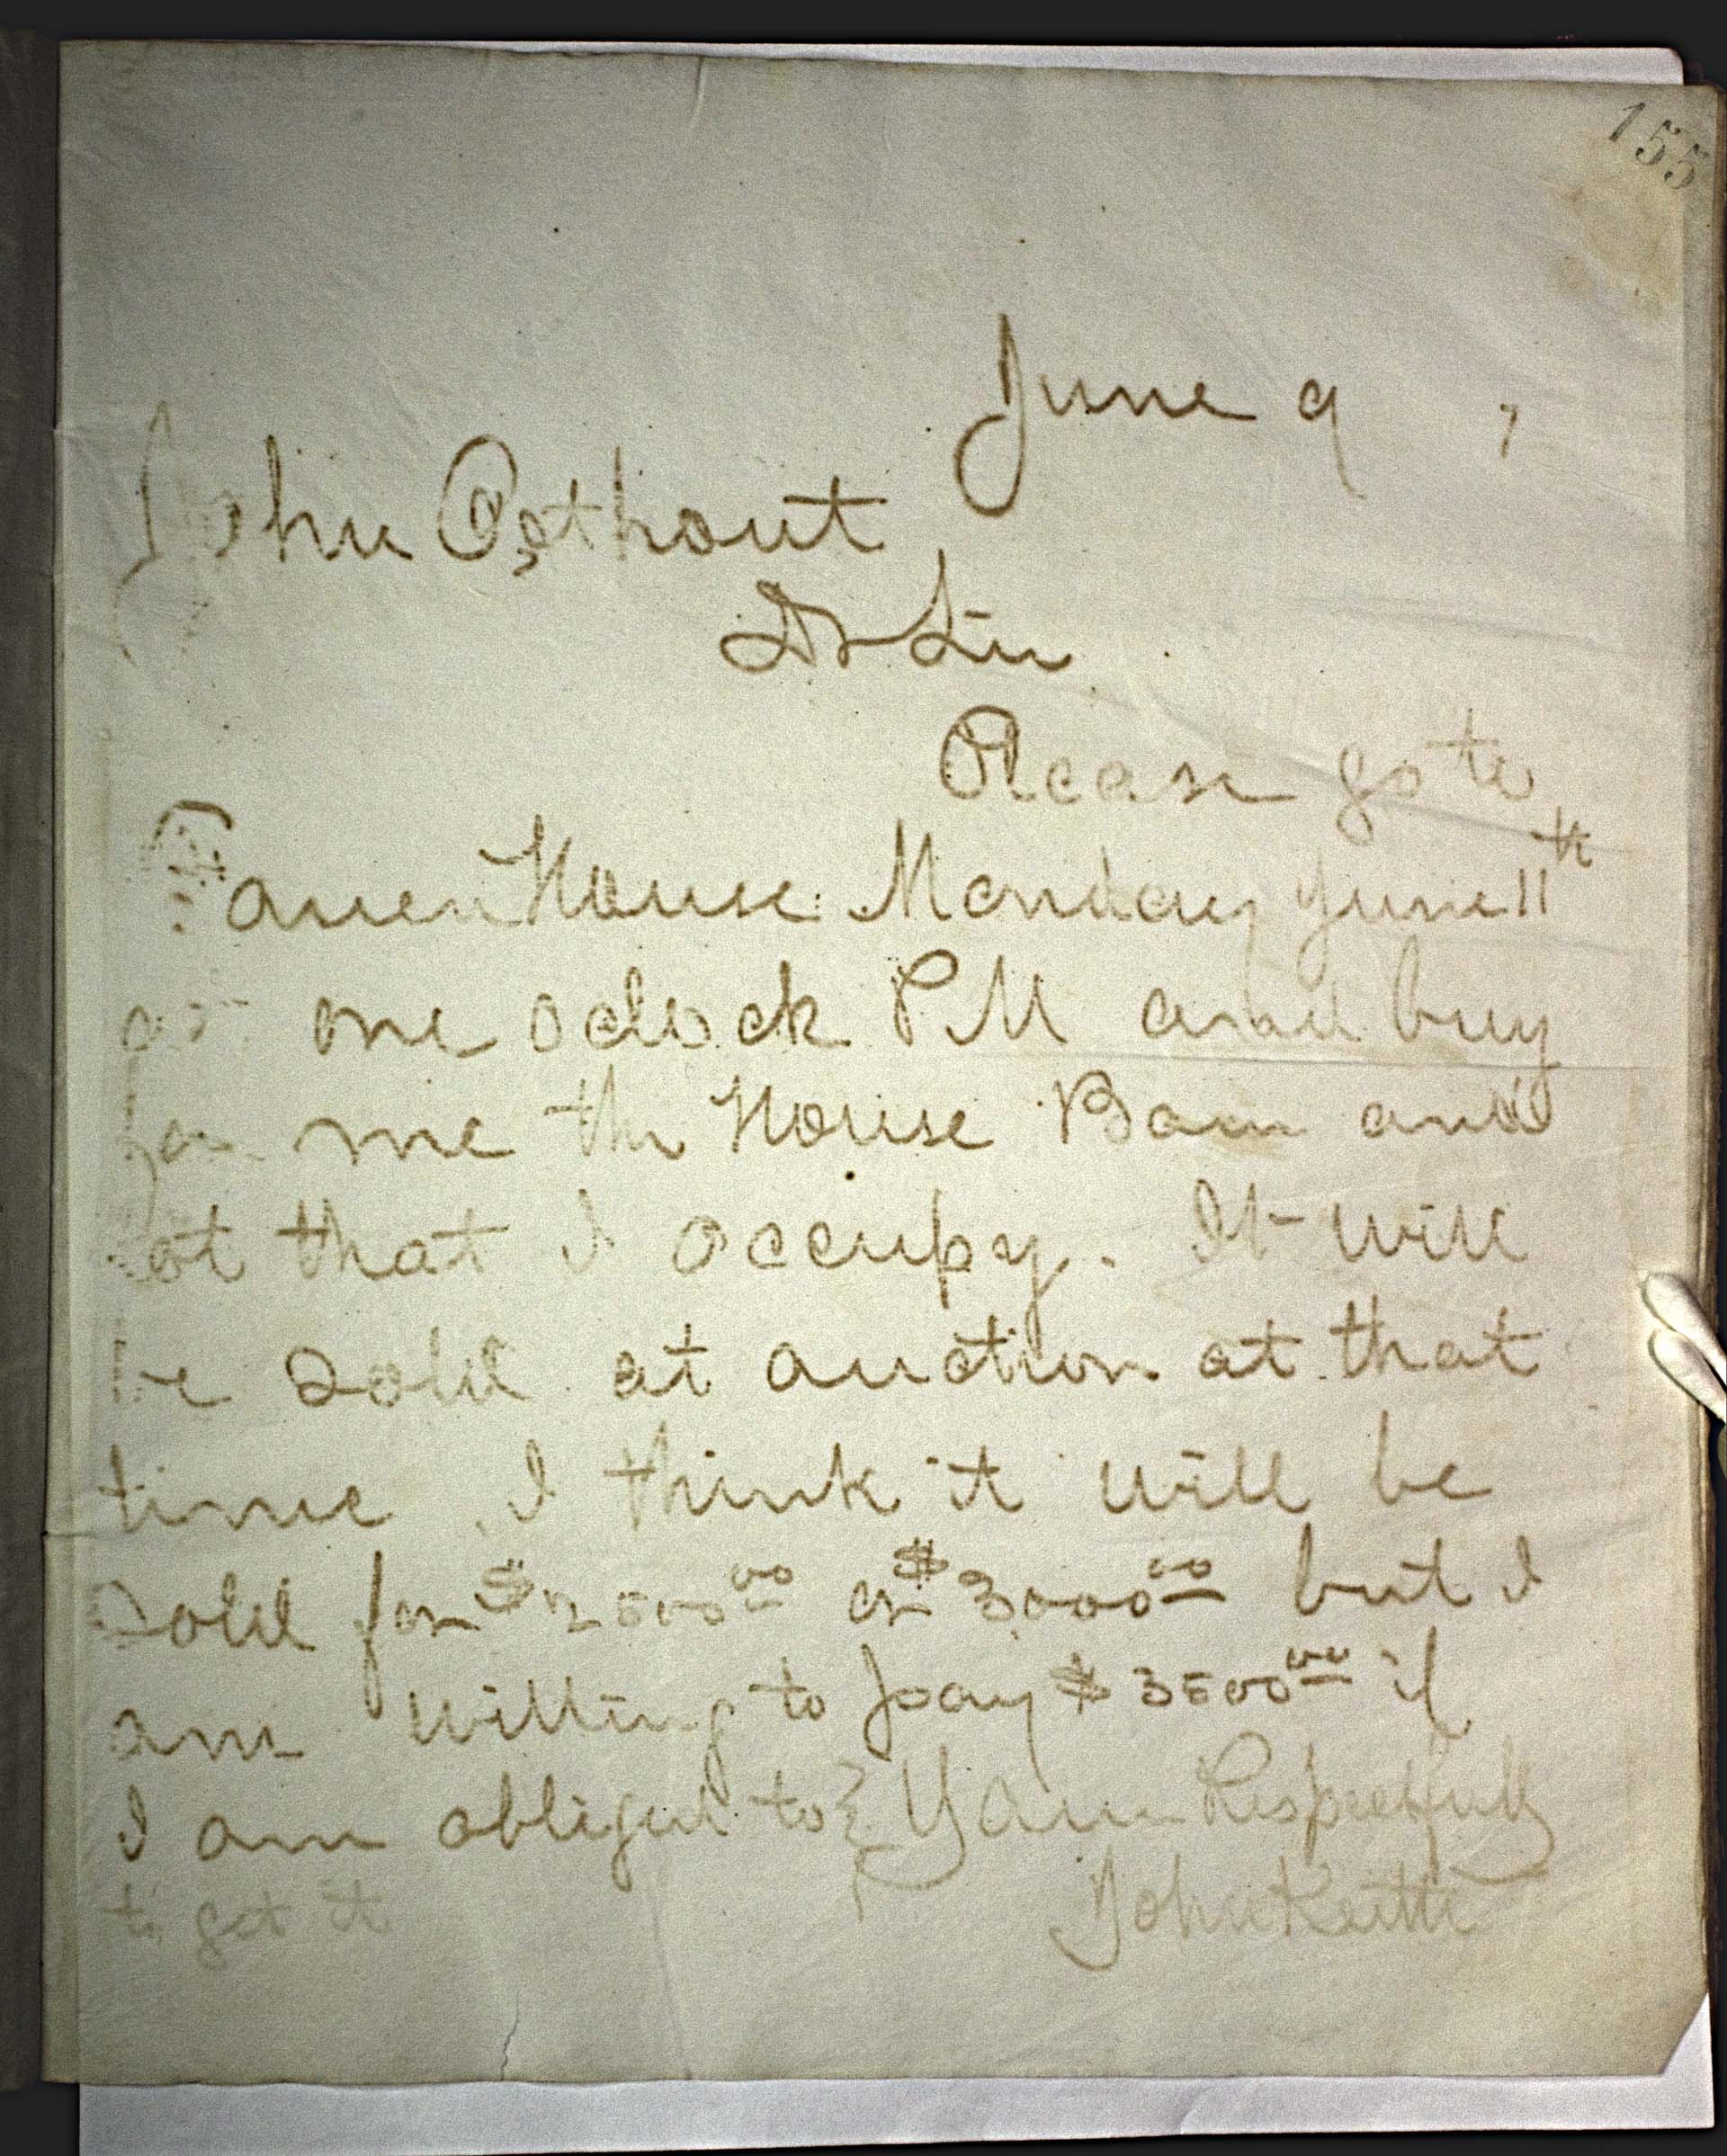 155
June 9
John Oothout
Dr Sir
Please go to
House Monday June 11th
at one oclock PM and buy
for me the House Barn and
lot that I occupy. It will
be sold at auction at that
time. I think it will be
sold for $2500 00 or $3000 00 but I
am willing to pay $3500 00 if
I am obliged to Yours Respectfully
to get it John Kette